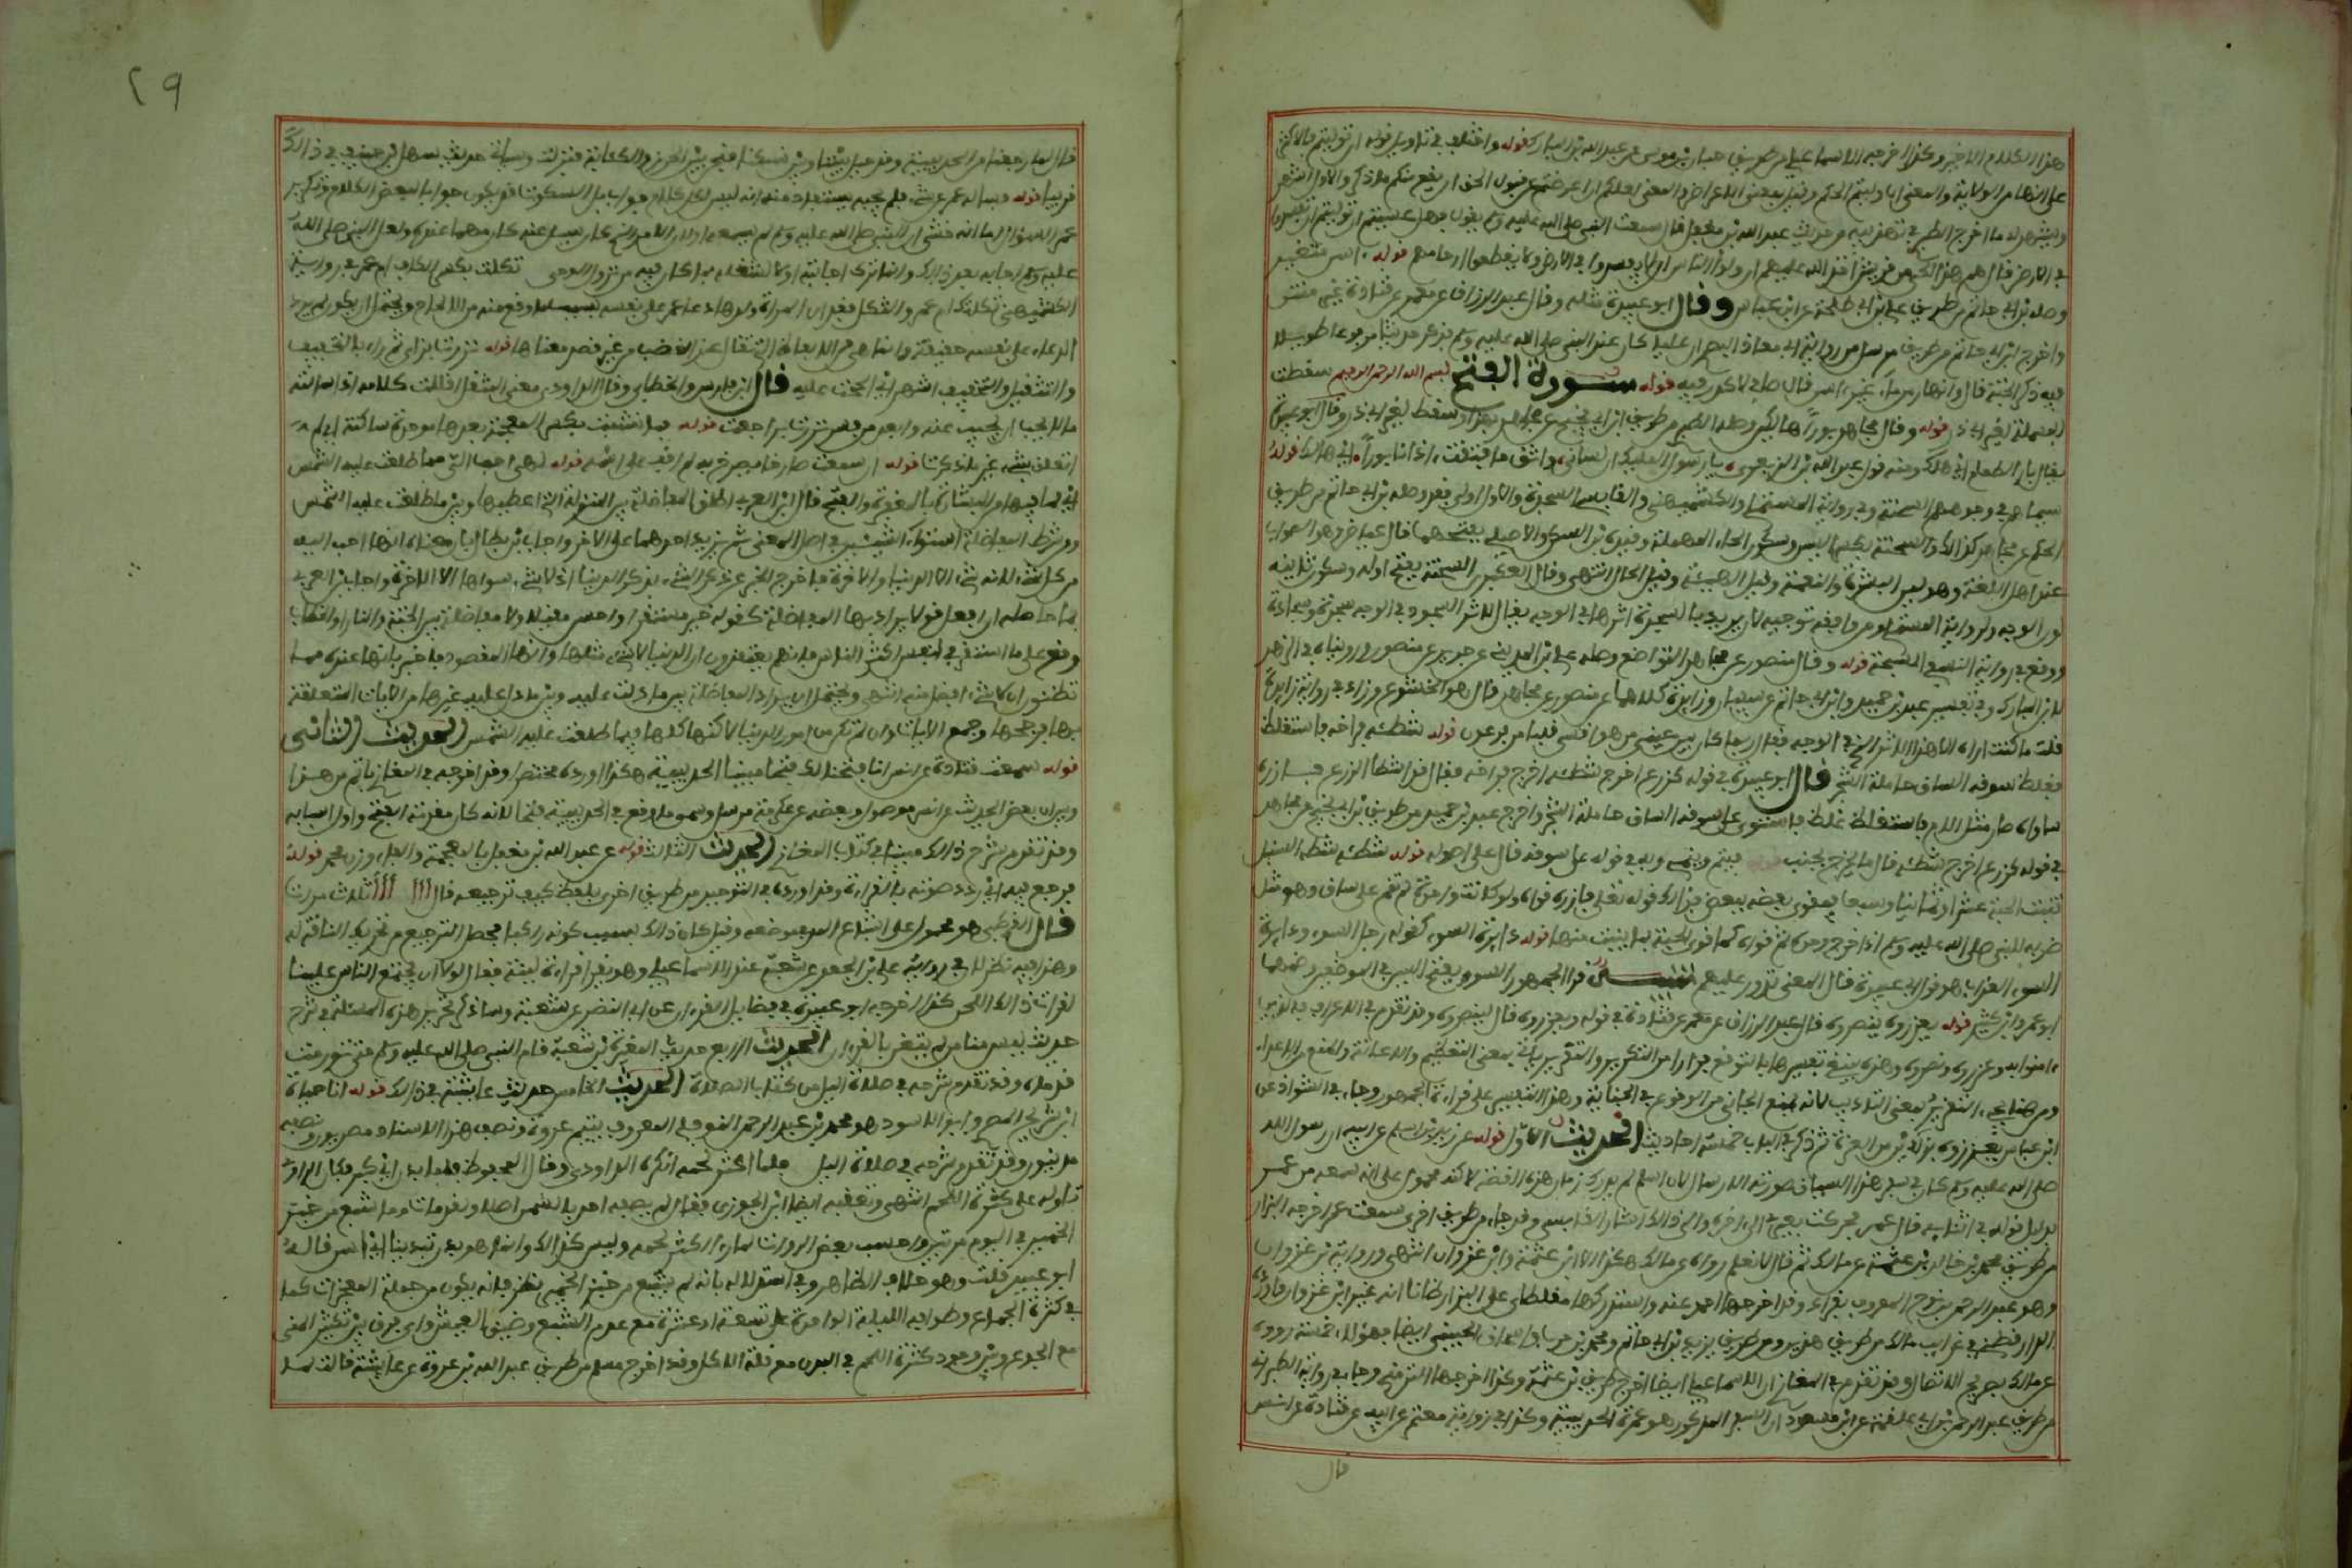 هذا الكلام الاخير وكذا اخرجه الاسماعيلي من طريق حبان بن موسى عن عبد الله بن المبارك قوله واختلف في تاويل قوله ان توليتم فالاكثر
على انها من الولاية والمعنى ان وليتم الحكم وقيل بمعنى الاعراض والمعنى لعلكم ان اعرضتم عن قبول الحق ان يقع منكم ما ذكر والاول اشهر
ويشهد له ما اخرج الطبري في تهذيبه من حديث عبد الله بن مغفل قال سمعت النبي صلى الله عليه وسلم يقول فهل عسيتم ان توليتم ان تفسدوا
في الارض قال هم هذا الحي من قريش اخذ الله عليهم ان ولوا الناس ان لا يفسدوا في الارض ولا يقطعوا ارحامهم قوله اسن متغير
وصله ابن ابي حاتم من طريق علي بن ابي طلحة عن ابن عباس وقال ابو عبيدة مثله وقال عبد الرزاق عن معمر عن قتادة غير منتن
واخرج ابن ابي حاتم من طريق مرسل من رواية ابي معاذ البصري ان عليا كان عند النبي صلى الله عليه وسلم فذكر حديثا مرفوعا طويلا
فيه ذكر الجنة قال وانهار من ماء غير اسن قال صاف لا كدر فيه قوله سورة الفتح بسم الله الرحمن الرحيم سقطت
البسملة لغير ابي ذر قوله وقال مجاهد بورا هالكين وصله الطبري من طريق ابن ابي نجيح عن مجاهد بهذا وسقط لغير ابي ذر وقال ابو عبيدة
يقال بار الطعام اي هلك ومنه قول عبد الله بن الزبعرى يا رسول المليك ان لساني راتق ما فتقت اذ انا بورا اي هالك قوله
سيماهم في وجوههم السحنة وفي رواية المستملي والكشميهني والقابسي السجدة والاول اولى فقد وصله ابن ابي حاتم من طريق
الحكم عن مجاهد كذلك والسحنة بكسر السين وسكون الحاء المهملة وقيده ابن السكن والاصيلي بفتحهما قال عياض وهو الصواب
عند اهل اللغة وهو لين البشرة والنعمة وقيل الهيئة وقيل الحال انتهى وقال العكبري السحنة بفتح اوله وسكون ثانيه
لون الوجه ولرواية المستملي ومن وافقه توجيه لانه يريد بالسجدة اثرها في الوجه يقال لاثر السجود في الوجه سجدة وسجادة
ووقع في رواية النسفي المسحة قوله وقال منصور عن مجاهد التواضع وصله علي بن المديني عن جرير عن منصور ورويناه في الزهد
لابن المبارك وفي تفسير عبد بن حميد وابن ابي حاتم عن سفيان وزايدة كلاهما عن منصور عن مجاهد قال هو الخشوع وزاد في رواية زايدة
قلت ما كنت اراه الا هذا الاثر الذي في الوجه فقال ربما كان بين عيني من هو اقسى قلبا من فرعون قوله شطئه فراخه فاستغلظ
فغلظ سوقه الساق حاملة الشجر قال ابو عبيدة في قوله كزرع اخرج شطئه اخرج فراخه يقال قد اشطا الزرع فازره
ساواه صار مثل الام فاستغلظ غلظ فاستوى على سوقه الساق حاملة الشجر واخرج عبد بن حميد من طريق ابن ابي نجيح عن مجاهد
في قوله كزرع اخرج شطئه قال ما يخرج بجنب فيتم وينمي وبه في قوله على سوقه قال على اصوله قوله شطئه شطء السنبل
تنبت الحبة عشرا وثمانيا وسبعا فيقوى بعضه ببعض فذاك قوله تعالى فازره قواه ولو كانت واحدة لم تقم على ساق وهو مثل
ضربه للنبي صلى الله عليه وسلم اذ اخرج وحده ثم قواه كما قوى الحبة بما ينبت منها قوله دايرة السوء كقولك رجل السوء ودايرة
السوء العذاب هو قول ابي عبيدة قال المعنى تدور عليهم قرا الجمهور السوء بفتح السين في الموضعين وضمها
ابو عمرو وابن كثير قوله يعزروه ينصروه قال عبد الرزاق عن معمر عن قتادة في قوله ويعزروه قال ينصروه وقد تقدم في الاعراف فالذين
امنوا به وعزروه ونصروه وهذه ينبغي تفسيرها بالتوقير فرارا من التكرير والتعزير ياتي بمعنى التعظيم والاعانة والمنع من الاعداء
ومن هنا يجيء التعزير بمعنى التاديب لانه يمنع الجاني من الوقوع في الجناية وهذا التفسير على قراءة الجمهور وجاء في الشواذ عن
ابن عباس يعززوه بزايين من العزة ثم ذكر في الباب خمسة احاديث الحديث الاول قوله عن زيد بن اسلم عن ابيه ان رسول الله
صلى الله عليه وسلم كان في سفر هذا السياق صورته الارسال لان اسلم لم يدرك زمان هذه القصة لكنه محمول على انه سمعه من عمر
بدليل قوله في اثنايه قال عمر فحركت بعيري الى اخره والى ذلك اشار القابسي وقد جاء من طريق اخرى سمعت عمر اخرجه البزار
من طريق محمد بن خالد بن عثمة عن مالك ثم قال لا نعلم رواه عن مالك هكذا الا ابن عثمة وابن غزوان انتهى ورواية ابن غزوان
وهو عبد الرحمن بن نوح المعروف بقراد قد اخرجها احمد عنه واستدركها مغلطاي على البزار ظانا انه غير ابن غزوان واورده
الدارقطني في غرايب مالك من طريق هذين ومن طريق يزيد بن ابي حكيم ومحمد بن حرب واسحاق الحنيني ايضا فهؤلاء خمسة رووه
عن مالك بصريح الاتصال وقد تقدم في المغازي ان الاسماعيلي ايضا اخرج طريق ابن عثمة وكذا اخرجها الترمذي وجاء في رواية الطبراني
من طريق عبد الرحمن بن ابي علقمة عن ابن مسعود ان السفر المذكور هو عمرة الحديبية وكذا في رواية معتمر عن ابيه عن قتادة عن انس
قال
٢٩
قال لما رجعنا من الحديبية وقد حيل بيننا وبين نسكنا فنحن بين الحزن والكئابة فنزلت وسياتي حديث سهل بن حنيف في ذلك
قريبا قوله فساله عمر عن شيء فلم يجبه يستفاد منه انه ليس لكل كلام جواب بل السكوت قد يكون جوابا لبعض الكلام وتكرير
عمر السؤال اما لكونه خشي ان النبي صلى الله عليه وسلم لم يسمعه او لان الامر الذي كان يسال عنه كان مهما عنده ولعل النبي صلى الله
عليه وسلم اجابه بعد ذلك وانما ترك اجابته اولا لشغله بما كان فيه من نزول الوحي ثكلت بكسر الكاف ام عمر في رواية
الكشميهني ثكلتك ام عمر والثكل فقدان المراة ولدها دعا عمر على نفسه بسبب ما وقع منه من الالحاح ويحتمل ان يكون لم يرد
الدعاء على نفسه حقيقة وانما هي من الالفاظ التي تقال عند الغضب من غير قصد معناها قوله نزرت بزاي ثم راء بالتخفيف
والتثقيل والتخفيف اشهر اي الححت عليه قال ابن فارس والخطابي وقال الداودي معنى المثقل اقللت كلامه اذا سالته
ما لا يجب ان يجيب عنه وابعد من فسر نزرت براجعت قوله فما نشبت بكسر المعجمة بعدها موحدة ساكنة اي لم
اتعلق بشيء غير ما ذكرت قوله ان سمعت صارخا يصرخ بي لم اقف على اسمه قوله لهي احب الي مما طلعت عليه الشمس
اي لما فيها من البشارة بالمغفرة والفتح قال ابن العربي اطلق المفاضلة بين المنزلة التي اعطيها وبين ما طلعت عليه الشمس
ومن شرط المفاضلة استواء الشيئين في اصل المعنى ثم يزيد احدهما على الاخر واجاب ابن بطال بان معناه انها احب اليه
من كل شيء لانه لا شيء الا الدنيا والاخرة فاخرج الخبر عن ذكر الشيء بذكر الدنيا اذ لا شيء سواها الا الاخرة واجاب ابن العربي
بما حاصله ان افعل قد لا يراد بها المفاضلة كقوله خير مستقرا واحسن مقيلا ولا مفاضلة بين الجنة والنار او الخطاب
وقع على ما استقر في انفس اكثر الناس فانهم يعتقدون ان الدنيا لا شيء مثلها وانها المقصود فاخبر بانها عنده مما
تظنون ان لا شيء افضل منه انتهى ويحتمل ان يراد المفاضلة بين ما دلت عليه وبين ما دل عليه غيرها من الايات المتعلقة
بها فرجحها وجمع الايات وان لم تكن من امور الدنيا لكنها كلها فيما طلعت عليه الشمس الحديث الثاني
قوله سمعت قتادة عن انس انا فتحنا لك فتحا مبينا الحديبية هكذا اورده مختصرا وقد اخرجه في المغازي باتم من هذا
وبين ان بعض الحديث عن انس موصول وبعضه عن عكرمة مرسل وسمى ما وقع في الحديبية فتحا لانه كان مقدمة الفتح واول اسبابه
وقد تقدم شرح ذلك مبينا في كتاب المغازي الحديث الثالث قوله عن عبد الله بن مغفل بالمعجمة والفاء وزن محمد قوله
فرجع فيها اي ردد صوته بالقراءة وقد اورده في التوحيد من طريق اخرى بلفظ كيف ترجيعه قال ااا ااا ثلاث مرات
قال القرطبي هو محمول على اشباع المد في موضعه وقيل كان ذلك بسبب كونه راكبا فحصل الترجيع من تحريك الناقة له
وهذا فيه نظر لان في رواية علي بن الجعد عن شعبة عند الاسماعيلي وهو يقرا قراءة لينة فقال لولا ان يجتمع الناس علينا
لقرات ذلك اللحن كذا اخرجه ابو عبيدة في فضايل القرءان عن ابي النضر عن شعبة وساذكر تحرير هذه المسئلة في شرح
حديث ليس منا من لم يتغن بالقرءان الحديث الرابع حديث المغيرة بن شعبة قام النبي صلى الله عليه وسلم حتى تورمت
قدماه وقد تقدم شرحه في صلاة الليل من كتاب الصلاة الحديث الخامس حديث عايشة في ذلك قوله انا حياة
ابن شريح المصري وابو الاسود هو محمد بن عبد الرحمن النوفلي المعروف بيتيم عروة ونصف هذا الاسناد مصريون ونصفه
مدنيون وقد تقدم شرحه في صلاة الليل فلما كثر لحمه انكره الداودي وقال المحفوظ فلما بدن اي كبر فكان الراوي
تاوله على كثرة اللحم انتهى وتعقبه ايضا ابن الجوزي فقال لم يصفه احد بالسمن اصلا ولقد مات وما شبع من خبز
الخمير في اليوم مرتين واحسب بعض الرواة لما راى بدن ظن كثر لحمه وليس كذلك وانما هو بدن تبدينا اي اسن قاله
ابو عبيد قلت وهو خلاف الظاهر وفي استدلاله بانه لم يشبع من خبز الخمير نظر فانه يكون من جملة المعجزات كما
في كثرة الجماع وطوافه الليلة الواحدة على تسعة او عشرة مع عدم الشبع وضيق العيش واي فرق بين تكثير المني
مع الجوع وبين وجود كثرة اللحم في البدن مع قلة الاكل وقد اخرج مسلم من طريق عبد الله بن عروة عن عايشة قالت لما